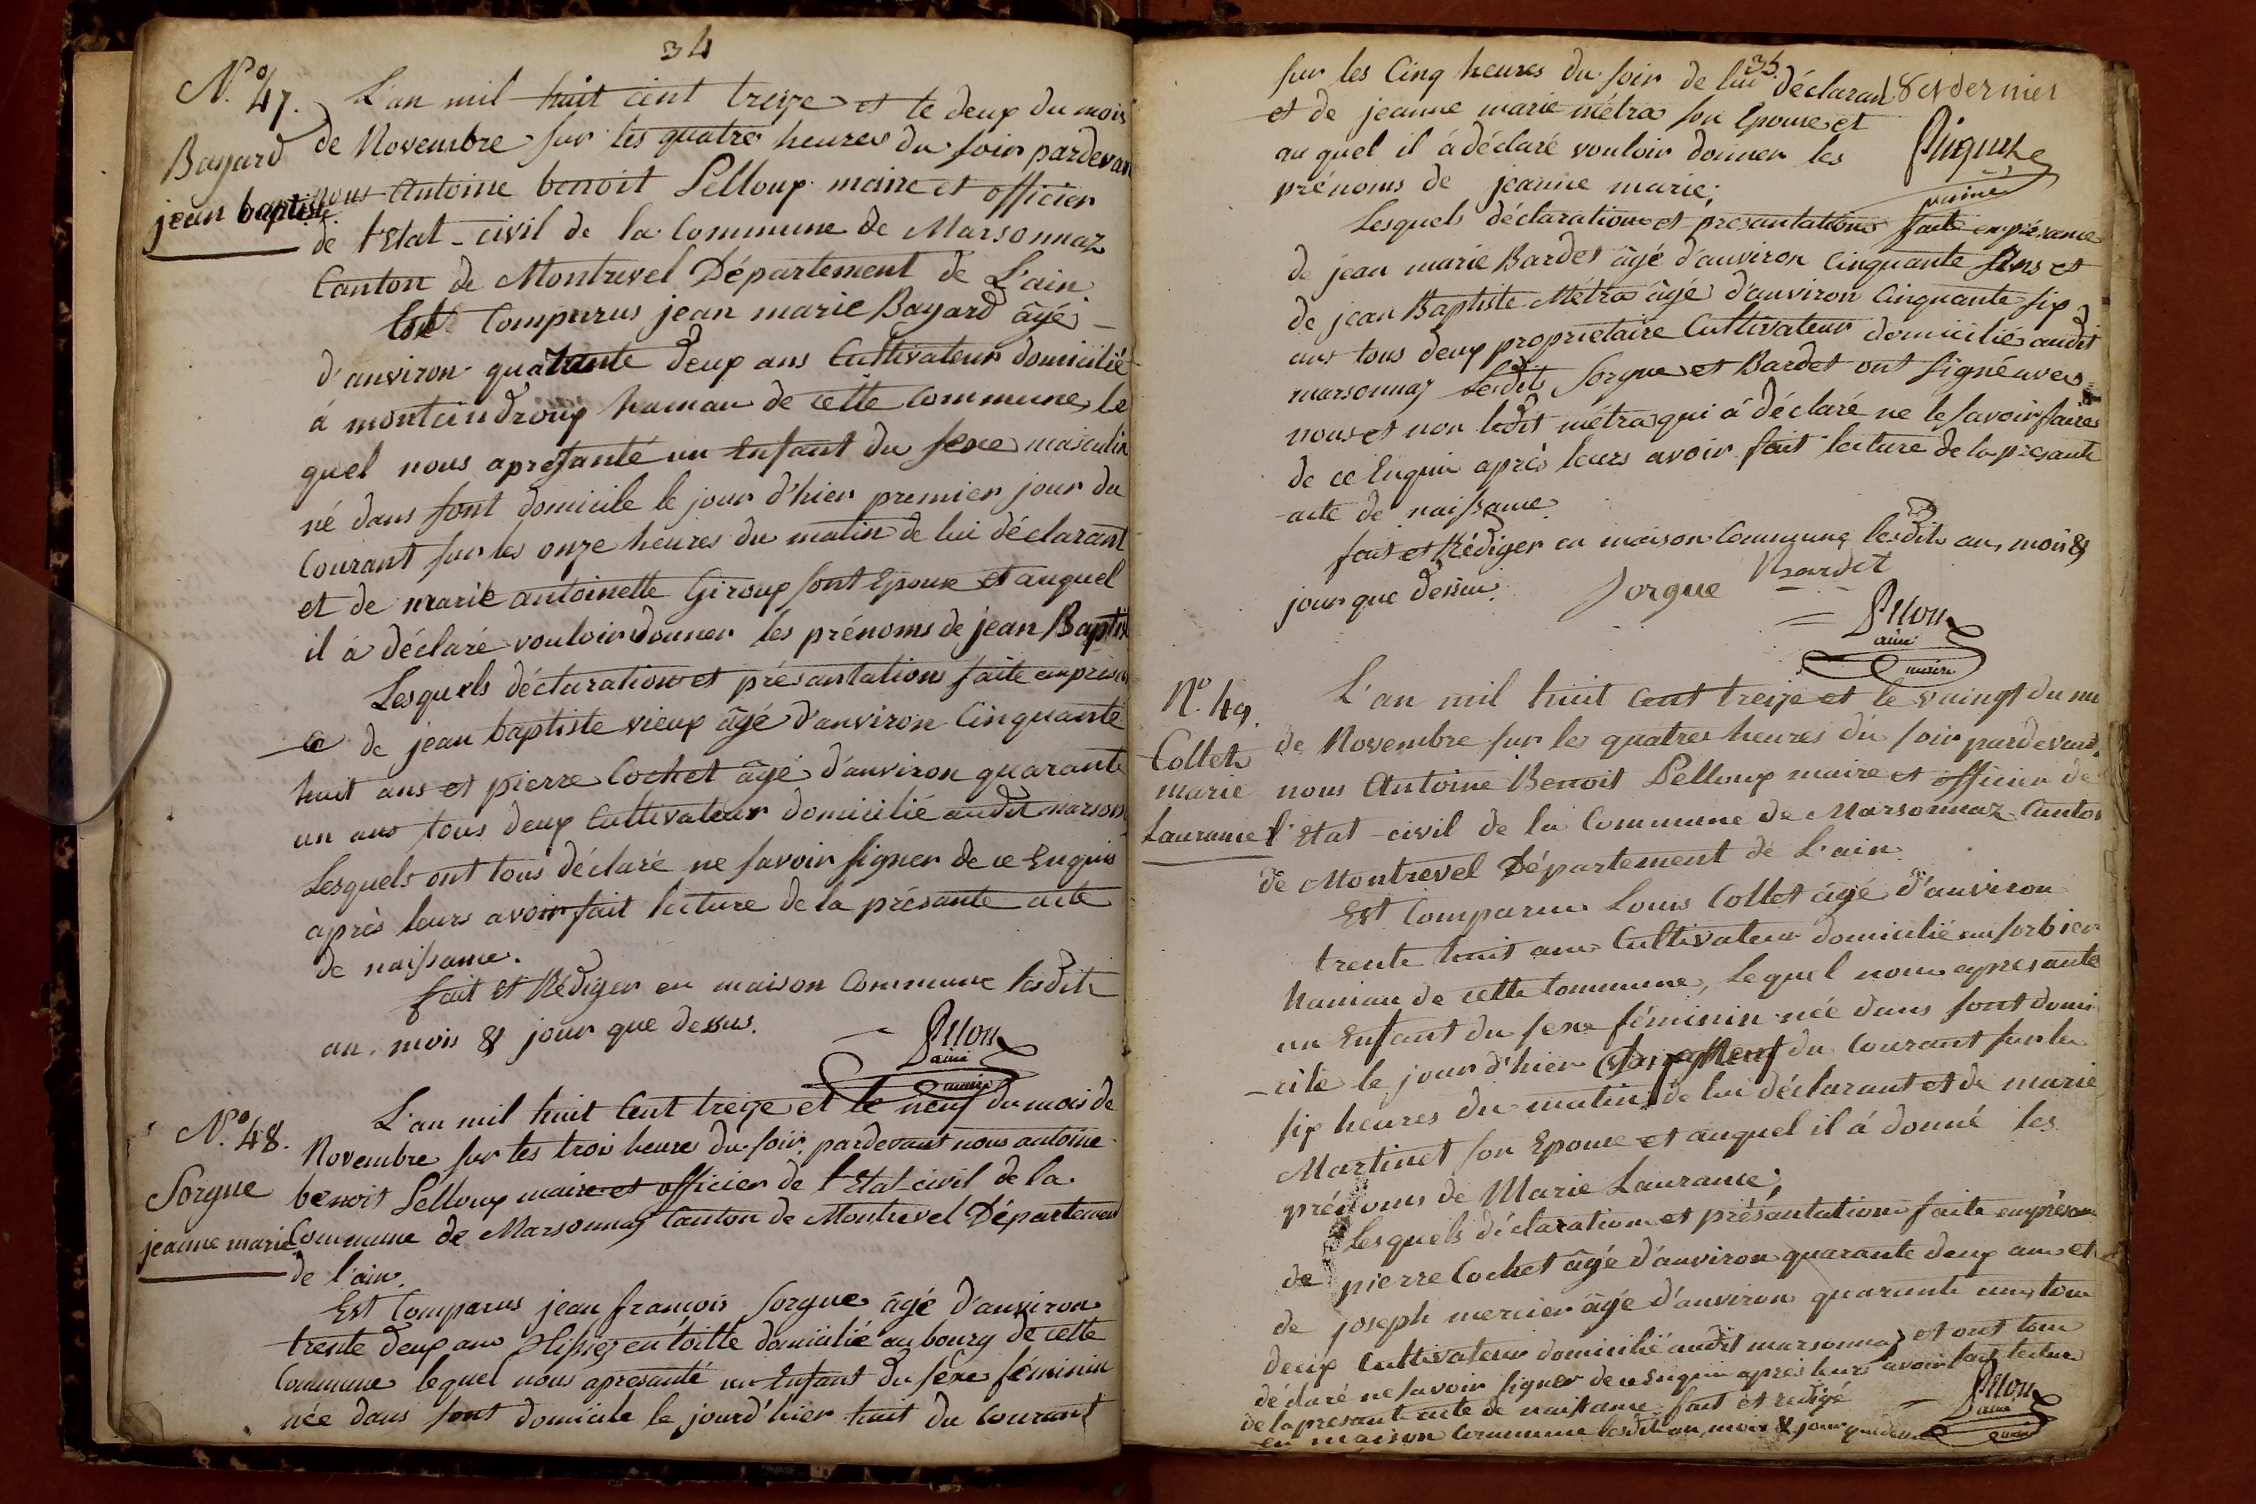 34
N.° 47.
Bayard
jean baptiste
L'an mil huit cent treize et le deux du mois
de Novembre sur les quatre heures du soir pardevan
nous Antoine benoit Pelloux maire et officier
de l'Etat-civil de la Commune de Marsonnaz
Canton de Montrevel Département de L'ain
Est Comparus jean marie Bayard âgé
d'anviron quarante deux ans Cultivateur domicilié
á montcindroux hamau de cette Commune, le
quel nous apresanté un Enfant du sexe masculin
né dans sont domicile le jour d'hier premier jour du
Courant sur les onze heures du matin de lui déclarant
et de marie antoinette Giroux sont Epouse et auquel
il á déclaré vouloir donner les prénoms de jean Baptis
Lesquels déclaration et présantation faite enprésan
ce de jean baptiste vieux âgé d'anviron Cinquante
huit ans et pierre Cochet âgé d'anviron quarante
un ans tous deux Cultivateur domicilié audit marson
Lesquels ont tous déclaré ne savoir signer de ce Enquis
après leurs avoir fait lecture de la présante acte
de naissance.
fait et Rédiger en maison Commune lesdits
an, mois & jour que dessus.
Pelloux
ainé
maire
N.° 48.
Sorgue
jeanne marie
L'an mil huit Cent treize et le neuf du mois de
Novembre sur les trois heure du soir, pardevant nous antoine
benoit Pelloux maire et officier de l'Etat civil de la
Commune de Marsonnaz Canton de Montrevel Département
de l'ain.
Est Comparus jean françois Sorgue âgé d'anviron
trente deux ans en toille domicilié au bourg de cette
Commune lequel nous apresanté un Enfant du sexe féminin
née dans sont domicile le jourd'hier huit du Courant
35
sur les Cinq heures du soir de lui déclarant
et de jeanne marie métra son Epouse et
au quel il á déclaré vouloir donner les
prénoms de jeanne marie;
8 et dernier
Lesquels déclaration et presantation faite en présance
de jean marie Bardet âgé d'anviron Cinquante ans et
de jean Baptiste Métra âgé d'anviron Cinquante six
ans tous deux propriétaire Cultivateur domicilié audit
marsonnaz Lesdits Sorgue et Bardet ont signé avec
nous et non ledit métra qui á déclaré ne le savoir faire
de ce Enquis après leurs avoir fait lecture de la presante
acte de naissance.
fait et Rédiger en maison Commune lesdits an, mois &
jour que dessus.
Sorgue Bardet
Pelloux
ainé
maire
N.° 49.
Collet
marie
Laurance
L'an mil huit Cent treize et le vaingt du mo
de Novembre sur les quatres heures du soir pardevant
nous Antoine Benoit Pelloux maire et officier de
l'Etat-civil de la Commune de Marsonnaz Canton
de Montrevel Département de L'ain
Est Comparus Louis Collet âgé d'anviron
trente huit ans Cultivateur domicilié au sorbier
hamau de cette Commune, Lequel nous apresanté
un Enfant du sexe féminin née dans sont domi
-cile le jour d'hier du Courant sur les
six heures du matin de lui déclarant et de marie
Martinet son Epouse et auquel il á donné les
prénoms de Marie Laurance;
Lesquels déclaration et présantation faite enprésan
de pierre Cochet âgé d'anviron quarante deux ans et
de joseph mercier âgé d'anviron quarante ans tous
deux Cultivateur domicilié audit marsonnaz et ont tous
déclaré ne savoir signer de ce Enquis après leurs avoir fait lecture
de la presante acte de naissance. fait et redigé
en maison Commune lesdits an, mois & jour que dessus
Pelloux
ainé
maire